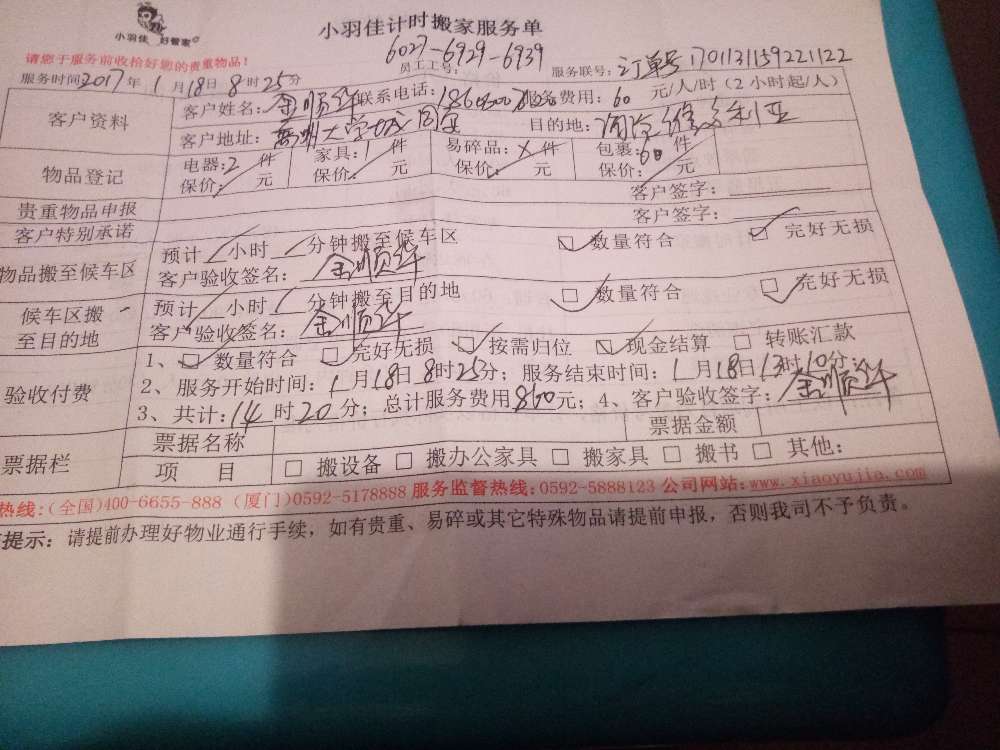 小羽佳 好管家
小羽佳计时搬家服务单
请您于服务前收拾好您的贵重物品！
6027-6929-6939
员工工号：
服务联号：订单号1701131159221122
服务时间2017年1月18日8时25分
客户资料
客户姓名：金顺华 联系电话： 服务费用：60元/人/时（2小时起/人）
客户地址： 目的地：
物品登记
电器：2件 家具：1件 易碎品：×件 包裹：60件
保价： 元 保价： 元 保价： 元 保价： 元
贵重物品申报 客户签字：
客户特别承诺 客户签字：
物品搬至候车区
预计 小时 分钟搬至候车区 数量符合 完好无损
客户验收签名：金顺华
候车区搬至目的地
预计 小时 分钟搬至目的地 数量符合 完好无损
客户验收签名：金顺华
验收付费
1、数量符合 完好无损 按需归位 现金结算 转账汇款
2、服务开始时间：1月18日8时25分；服务结束时间：1月18日13时10分；
3、共计：14时20分；总计服务费用860元；4、客户验收签字：金顺华
票据栏
票据名称 票据金额
项 目 搬设备 搬办公家具 搬家具 搬书 其他：
热线：(全国)400-6655-888 (厦门)0592-5178888 服务监督热线：0592-5888123 公司网站：www.xiaoyujia.com
提示：请提前办理好物业通行手续，如有贵重、易碎或其它特殊物品请提前申报，否则我司不予负责。